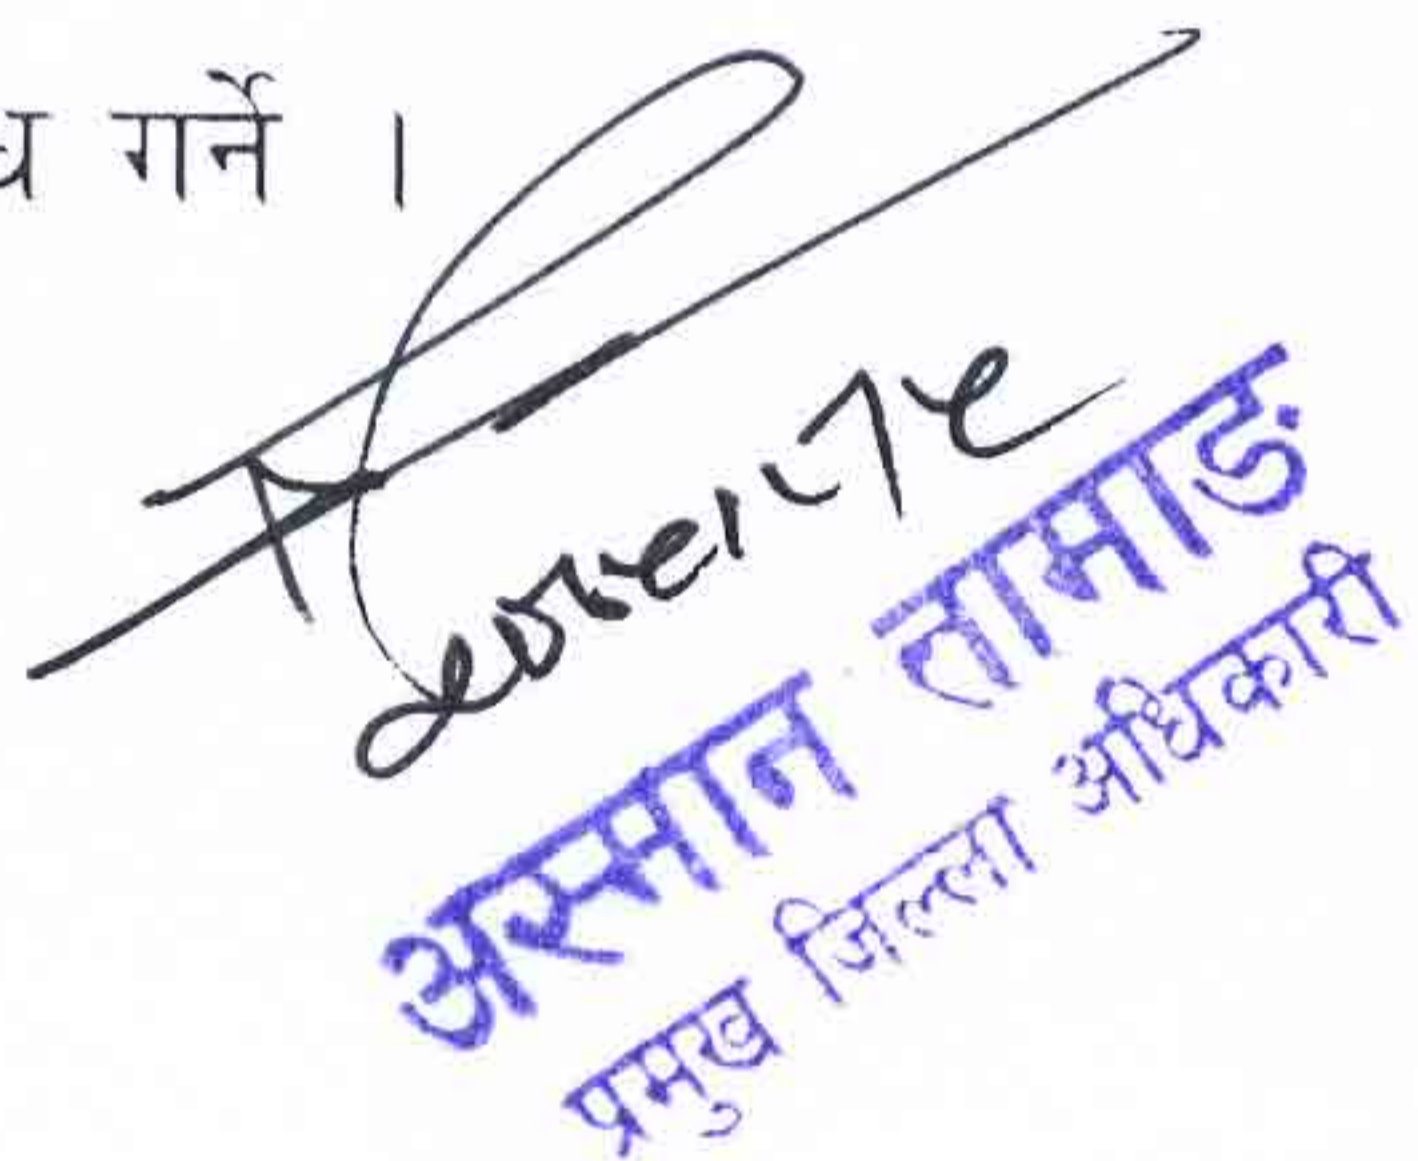 गर्ने ।
अस्मान तामाङ
प्रमुख जिल्ला अधिकारी